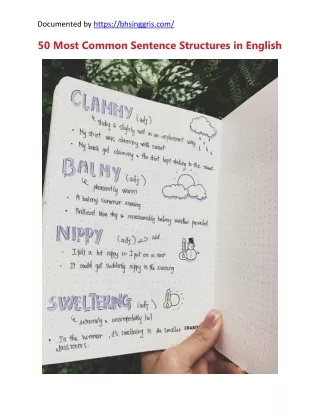 Documented by https://bhsinggris.com/
50 Most Common Sentence Structures in English
CLAMMY (adj)
↳ sticky & slightly wet in an unpleasant way
• My shirt was clammy with sweat
• My back got clammy & the shirt kept sticking to the sweat
BALMY (adj)
↳ pleasantly warm
• A balmy summer evening
• Brilliant blue sky & unseasonably balmy weather prevailed
NIPPY (adj) cold
• I felt a bit nippy so I put on a coat
• It could get suddenly nippy in the evening
SWELTERING (adj)
↳ extremely & uncomfortably hot
• In the summer, it's sweltering in the smaller
classrooms.